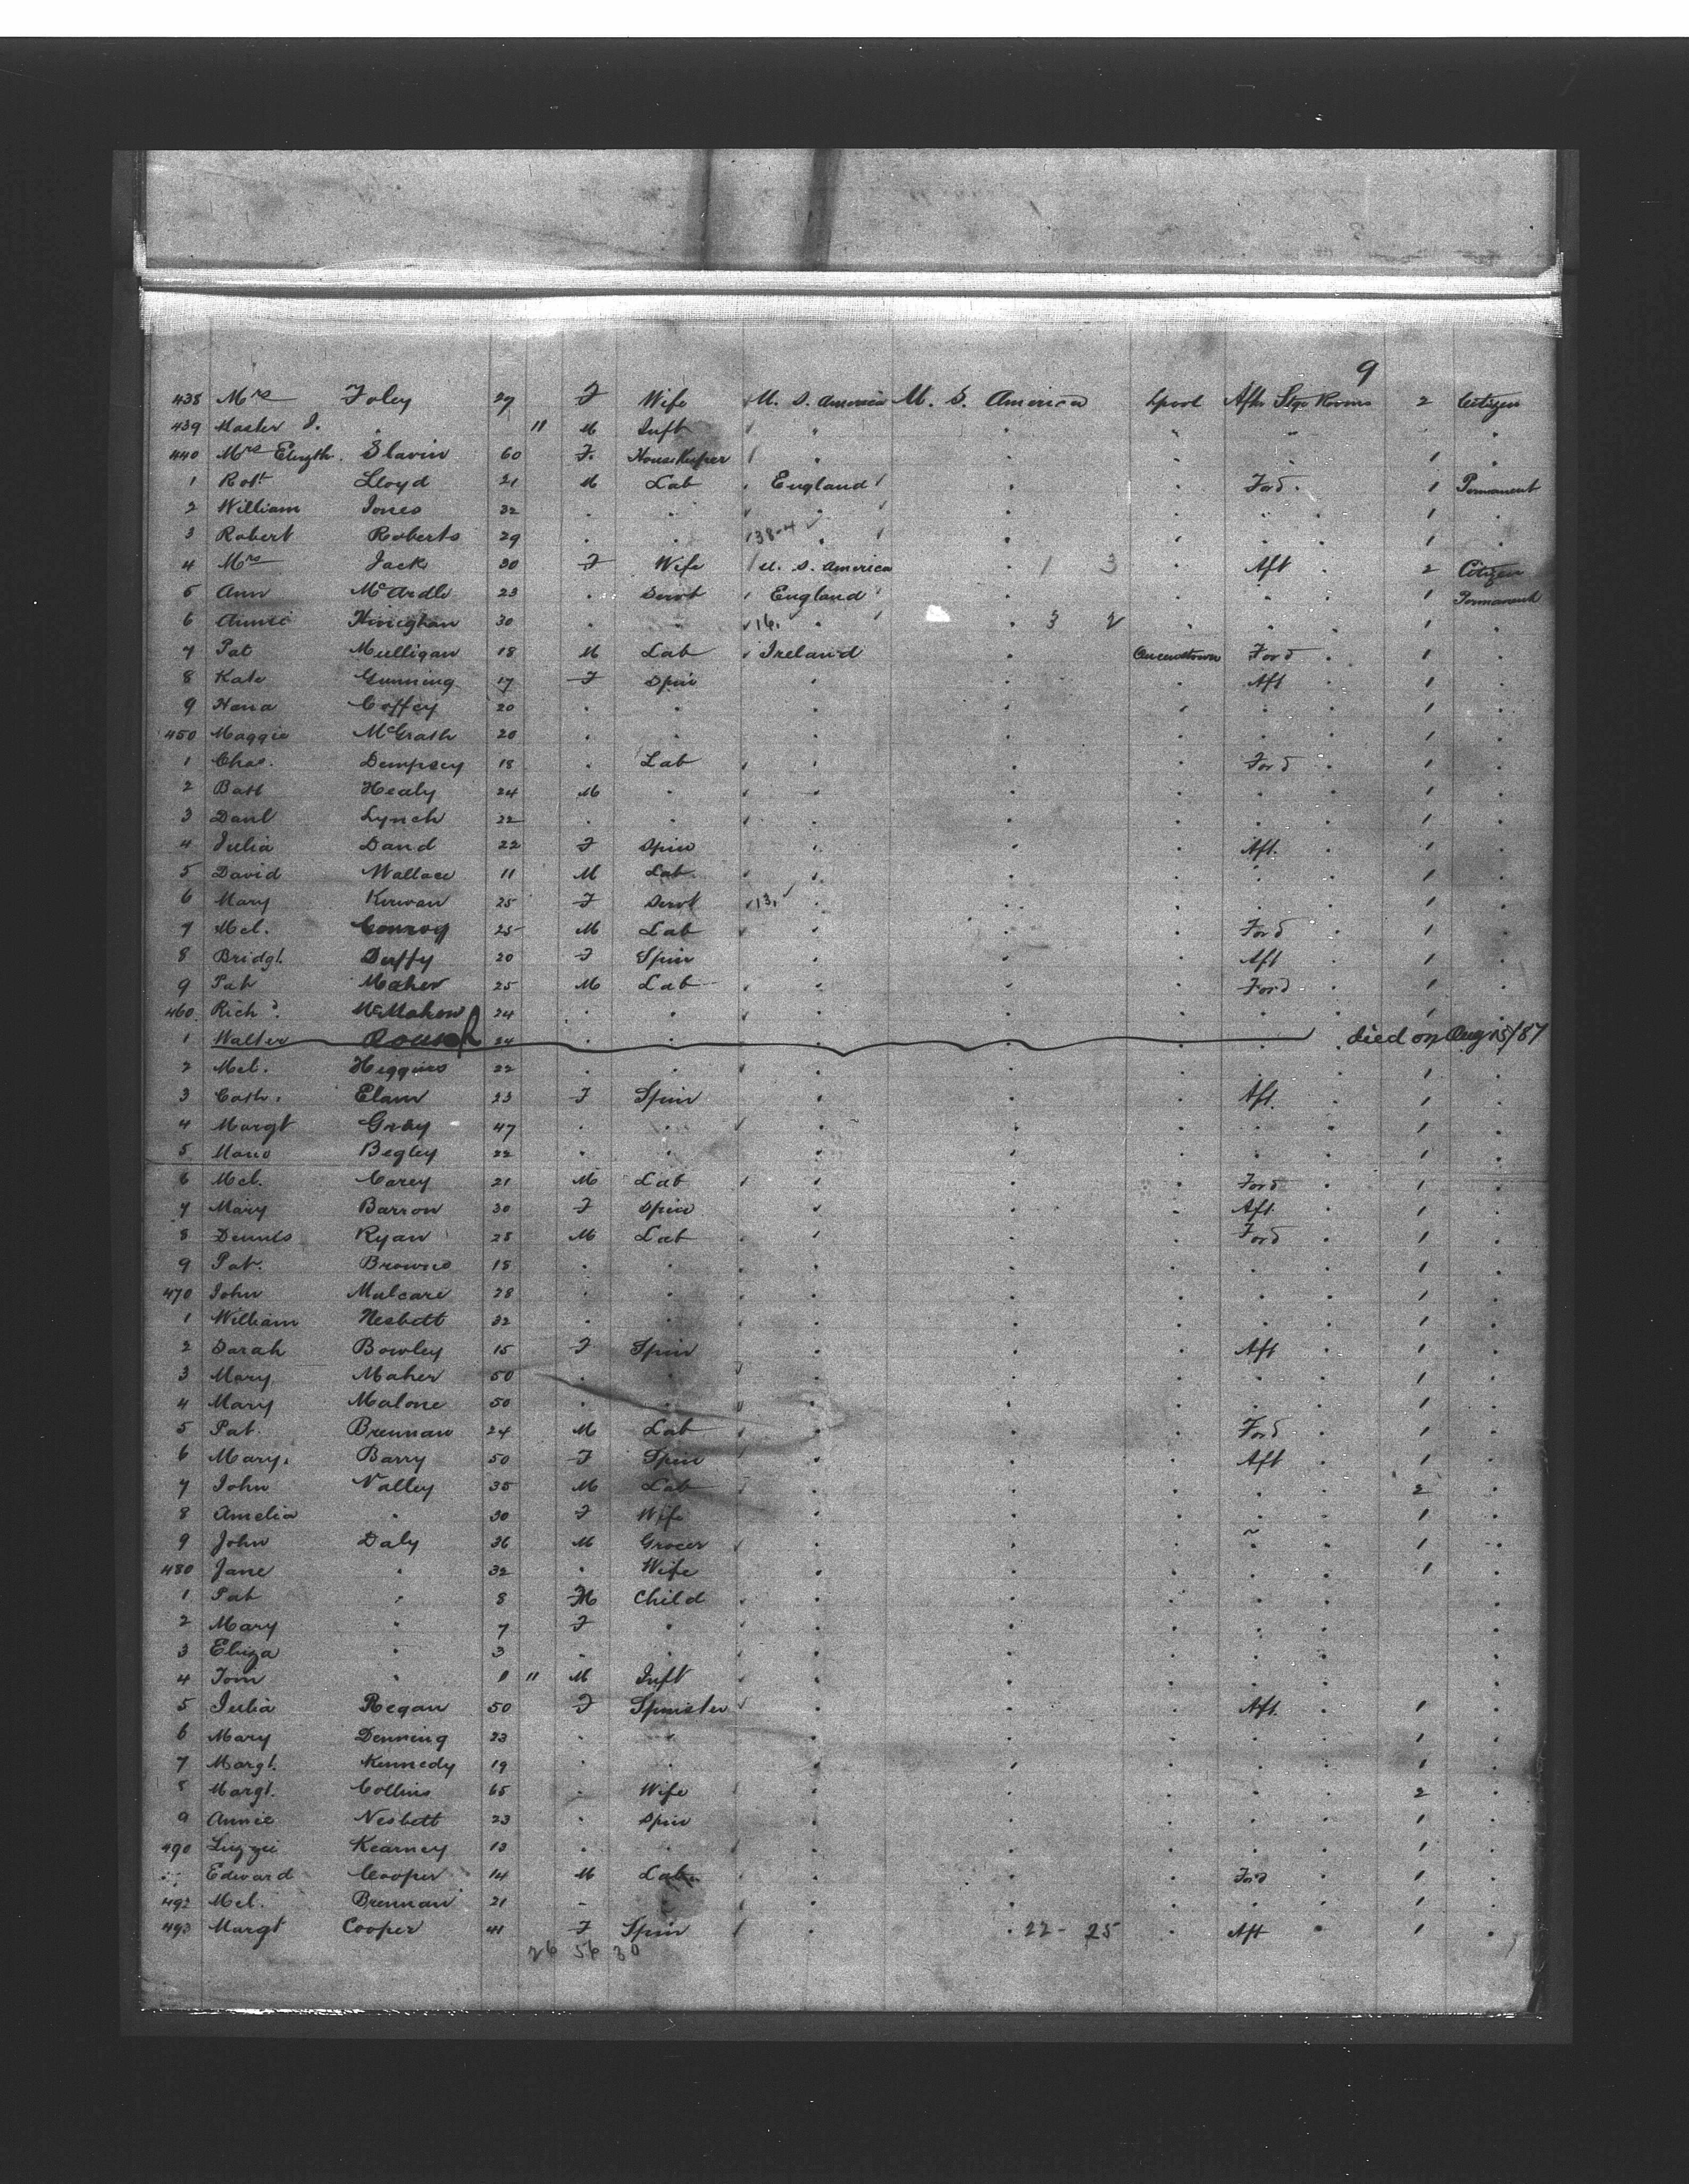 9
438 Mrs Foley 29 F Wife U. S. America U. S. America Lpool Aftr Stge Rooms 2 Citizen
439 Master J. " 11 M Inft " " " " "
440 Mrs Elizth. Slavin 60 F. HouseKeeper " " " " 1 "
1 Robt Lloyd 21 M Lab England " " Ford " 1 Permanent
2 William Jones 32 " " " " " " 1 "
3 Robert Roberts 29 " " 38-4 " " " " 1 "
4 Mrs Jack 30 F Wife U. S. America " 1 3 " Aft " 2 Citizen
5 Ann McArdle 23 " Servt England " " " 1 Permanent
6 Annie 30 " " 16. " " 3 2 " " 1 "
7 Pat Mulligan 18 M Lab Ireland " Queenstown Ford " 1 "
8 Kate Gunning 17 F Spin " " " Aft " 1 "
9 Hana Coffey 20 " " " " " " " 1 "
450 Maggie McGrath 20 " " " " " " " 1 "
1 Chas. Dempsey 18 " Lab " " " Ford " 1 "
2 Batt Healy 24 M " " " " " " 1 "
3 Danl Lynch 22 " " " " " " " 1 "
4 Julia Dand 22 F Spin " " " Aft. " 1 "
5 David Wallace 11 M Lab " " " " " 1 "
6 Mary Kirwan 25 F Servt 13. " " " " " 1 "
7 Mcl. Conroy 25 M Lab " " " Ford " 1 "
8 Bridgt. Duffy 20 F Spin " " " Aft " 1 "
9 Pat Maher 25 M Lab " " " Ford " 1 "
460 Richd. McMahon 24 " " " " " " " 1 "
1 Walter 24 " " " " " " died on Aug 15/87
2 Mcl. Higgins 22 " " " " " " " 1 "
3 Cath. Elam 23 F Spin " " " Aft. " 1 "
4 Margt Gray 47 " " " " " " " 1 "
5 Begley 22 " " " " " " " 1 "
6 Mcl. Carey 21 M Lab " " " Ford " 1 "
7 Mary Barron 30 F Spin " " " Aft. " 1 "
8 Dennis Ryan 28 M Lab " " " Ford " 1 "
9 Pat. Browne 18 " " " " " " " 1 "
470 John Mulcare 28 " " " " " " " 1 "
1 William Nesbett 32 " " " " " " " 1 "
2 Sarah Bowley 15 F Spin " " " Aft " 1 "
3 Mary Maher 50 " " " " " " " 1 "
4 Mary Malone 50 " " " " " " " 1 "
5 Pat. Brennan 24 M Lab " " " Ford " 1 "
6 Mary. Barry 50 F Spin " " " Aft " 1 "
7 John Nalley 35 M Lab " " " " " 2 "
8 Amelia " 30 F Wife " " " " " 1 "
9 John Daly 36 M Grocer " " " " " 1 "
480 Jane " 32 " Wife " " " " " 1 "
1 Pat " 8 M Child " " " " " "
2 Mary " 7 F " " " " " " "
3 Eliza " 3 " " " " " " " "
4 Tom " 11 M Inft " " " " " "
5 Julia Regan 50 F Spinster " " " Aft. " 1 "
6 Mary Denning 23 " " " " " " " 1 "
7 Margt. Kennedy 19 " " " " " " " 1 "
8 Margt. Collins 65 " Wife " " " " " 2 "
9 Annie Nesbett 23 " Spin " " " " " 1 "
490 Lizzie Kearney 13 " " " " " " " 1 "
Edward Cooper 14 M Lab " " " Ford " 1 "
492 Mcl. Brennan 21 " " " " " " " 1 "
493 Margt Cooper 41 F Spin " " 22 - 25 " Aft " 1 "
26 56 30